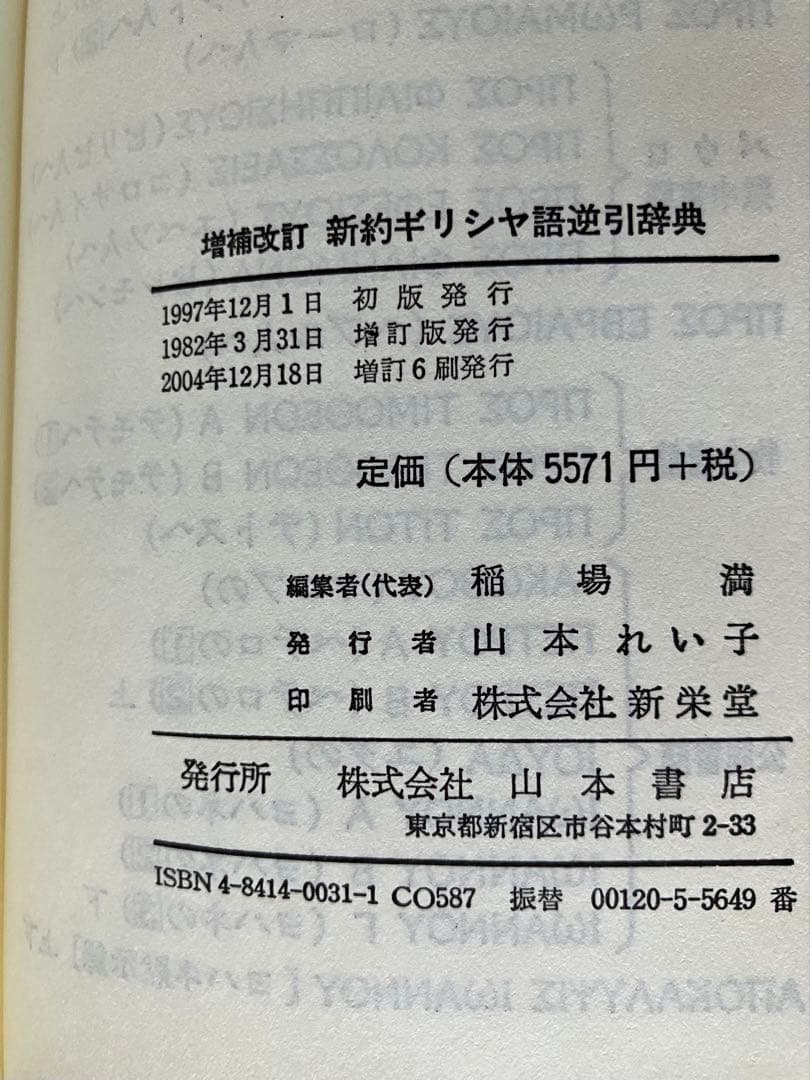 増補改訂 新約ギリシヤ語逆引辞典
1997年12月1日 初版発行
1982年3月31日 増訂版発行
2004年12月18日 増訂6刷発行
定価（本体5571円＋税）
編集者(代表) 稲場満
発行者 山本れい子
印刷者 株式会社新栄堂
発行所 株式会社 山本書店
東京都新宿区市谷本村町2-33
ISBN4-8414-0031-1 CO587 振替 00120-5-5649 番